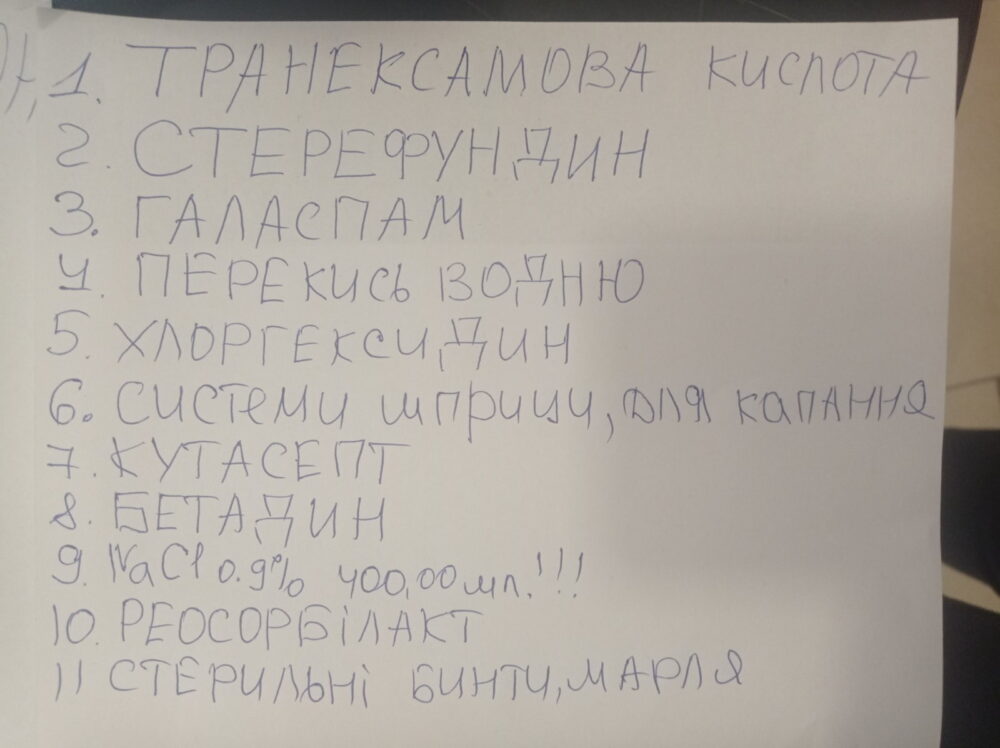 1. ТРАНЕКСАМОВА КИСЛОТА
2. СТЕРЕФУНДИН
3. ГАЛАСПАМ
4. ПЕРЕКИСЬ ВОДНЮ
5. ХЛОРГЕКСИДИН
6. СИСТЕМИ ШПРИЦИ, ДЛЯ КАПАННЯ
7. КУТАСЕПТ
8. БЕТАДИН
9. NaCl 0.9% 400,00мл.!!!
10. РЕОСОРБіЛАКТ
11 СТЕРИЛЬНі БИНТИ, МАРЛЯ